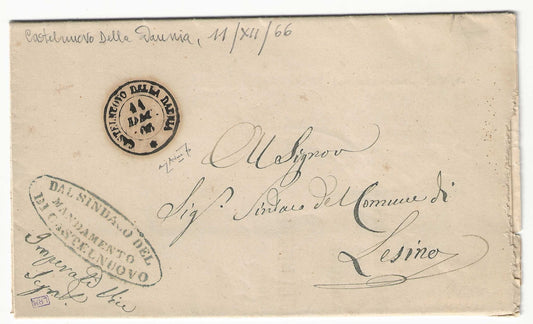 Castelnuovo Della Daunia, 11/XII/66
CASTELNUOVO DELLA DAUNIA
11
DIC
66
Al Signor
Sig.r Sindaco del Comune di
Lesina
DAL SINDACO DEL
MANDAMENTO
DI CASTELNUOVO